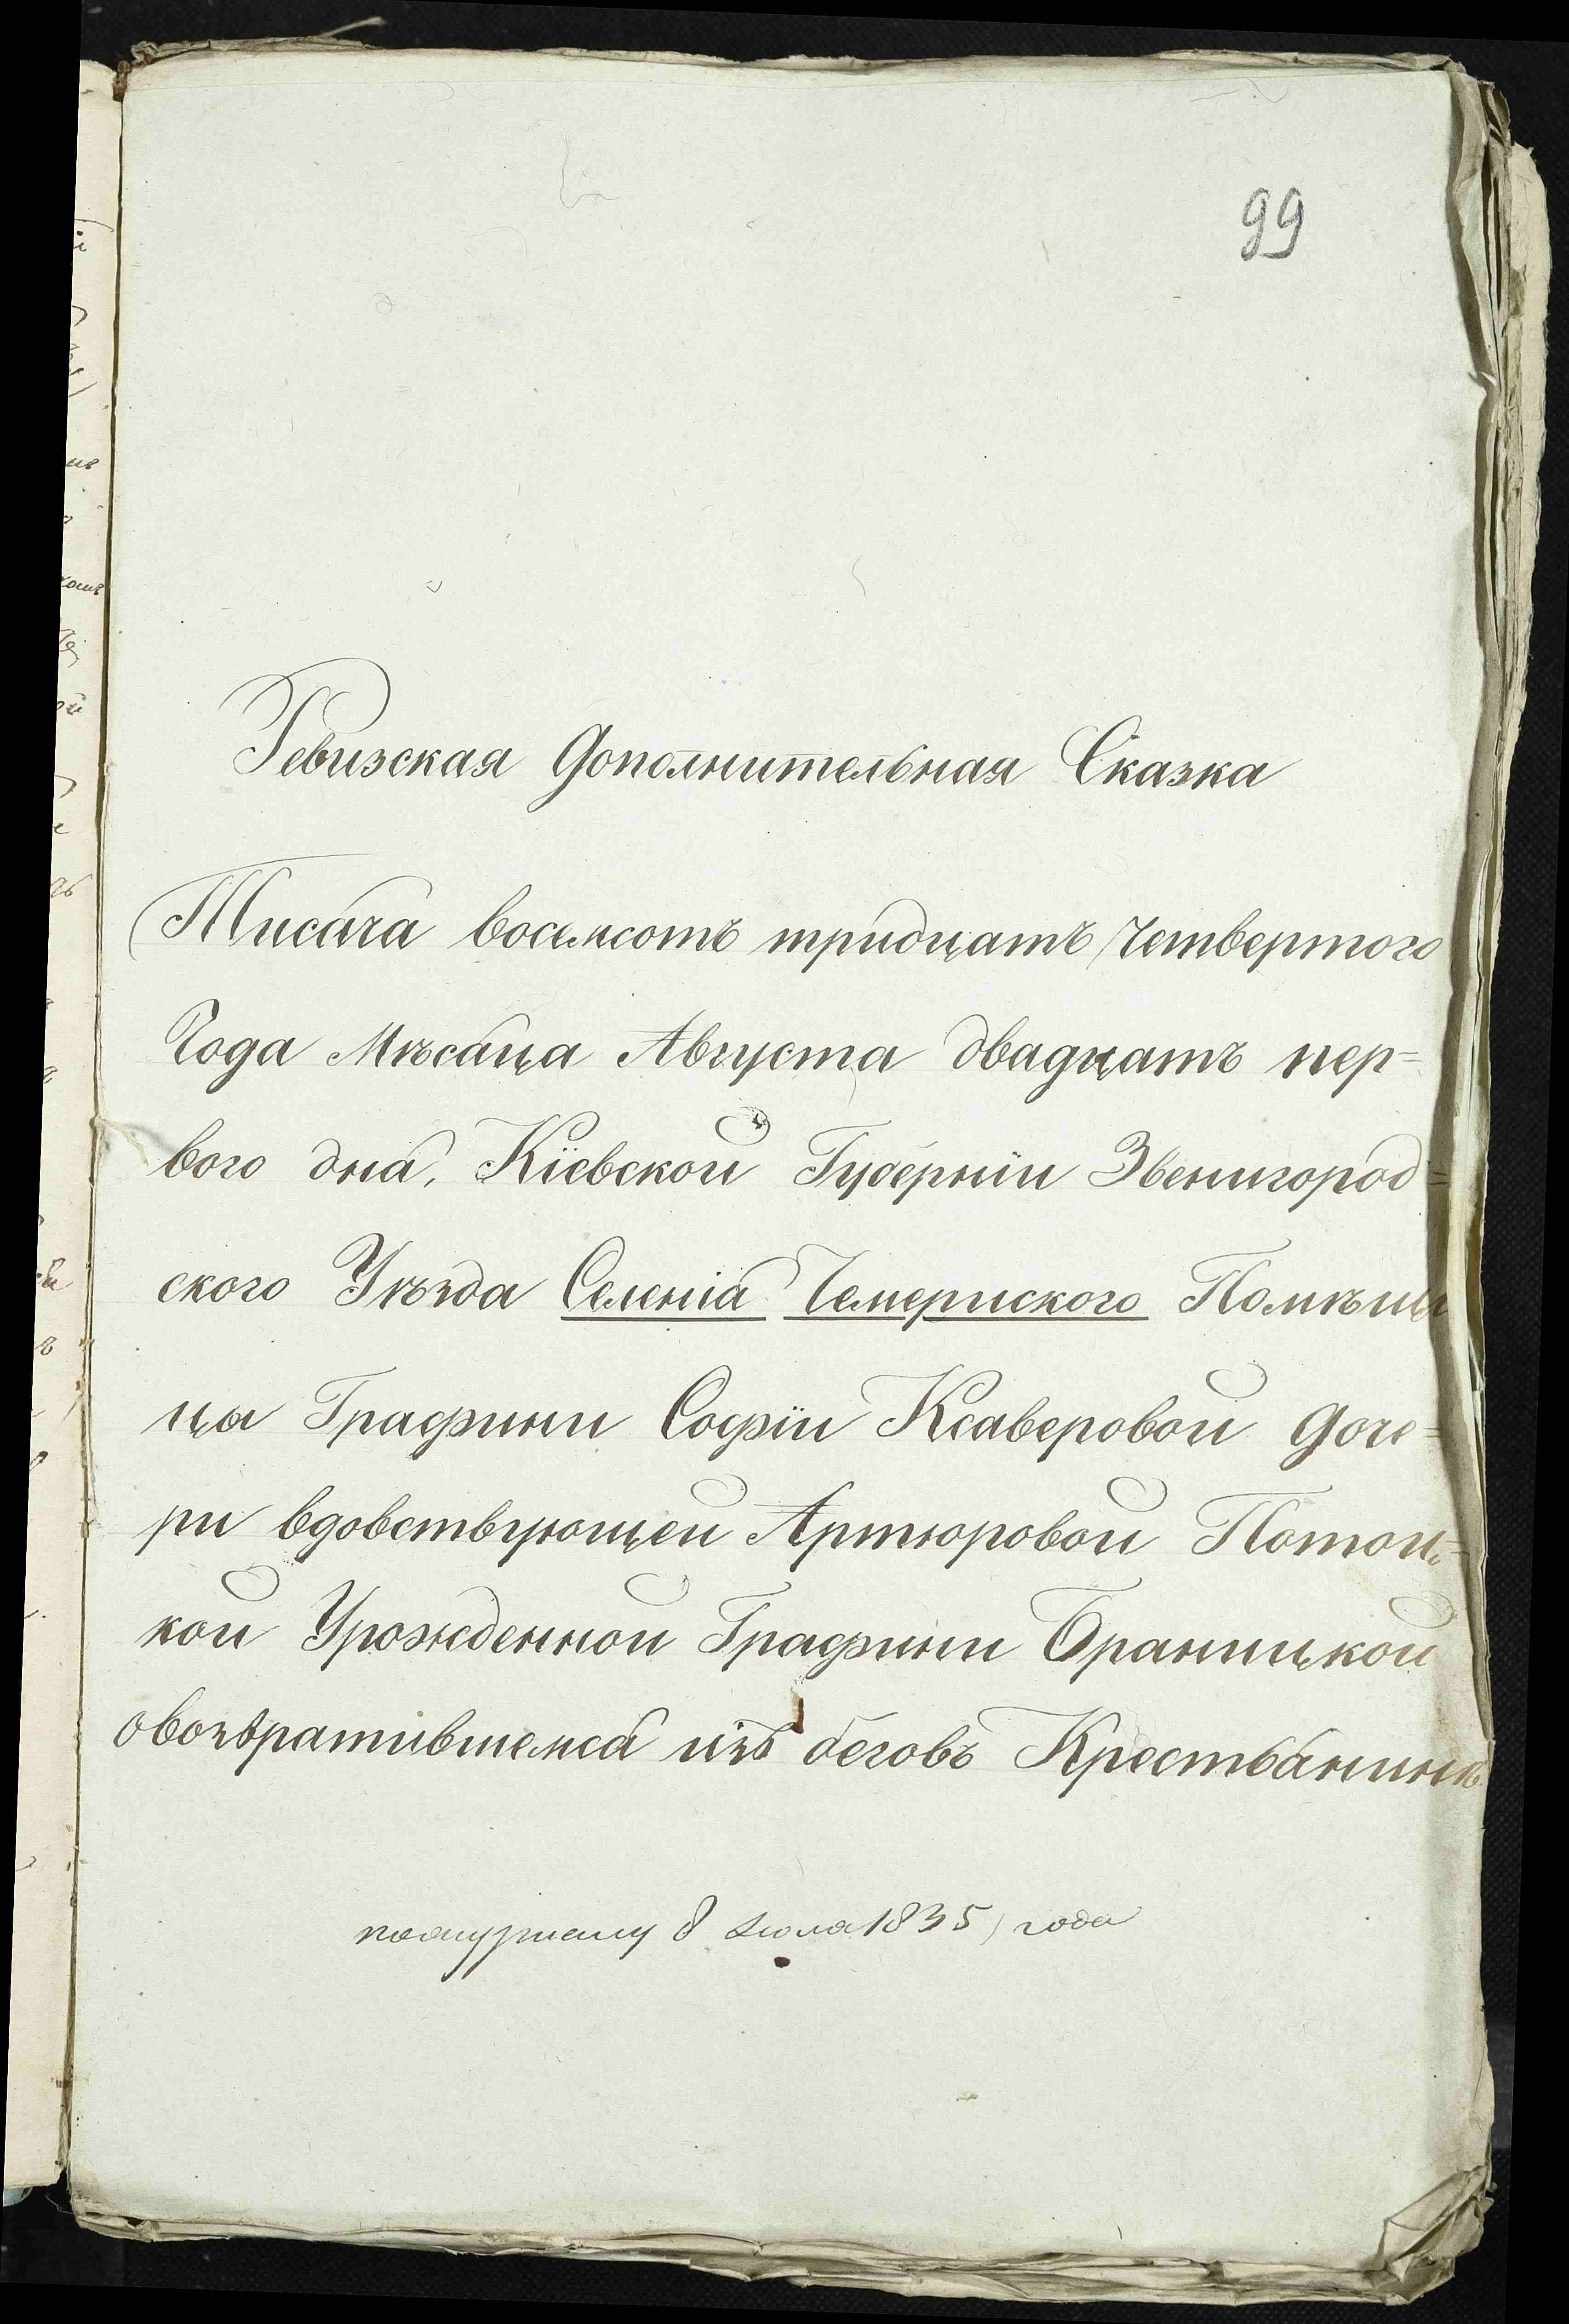 99
Ревизская Дополнительная Сказка
Тисяча восемсотъ тридцатъ Четвертого
Года Мѣсяца Августа двадцатъ пер=
вого дня, Кіевской Губерніи Звенигород=
ского Уѣзда Селенія Чемериского Помѣщи
цы Графини Софіи Ксаверовой Доче=
ри вдовствующей Артюровой Потоц=
кой Урожденной Графини Браницкой
овозвратившемся изъ беговъ Крестьянинѣ
8 Июля 1835 года